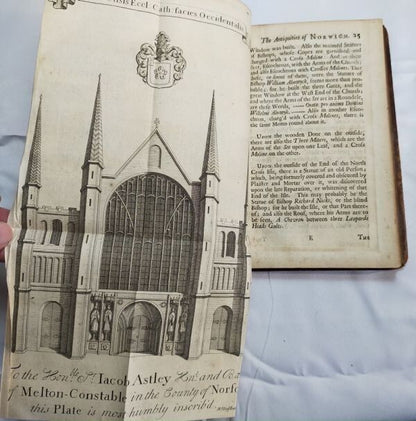 nsis Eccl. Cath. facies Occidentalis
To the Hon.ble Sr. Iacob Astley Knt. and Ba
of Melton-Constable in the County of Norfo
this Plate is most humbly inscrib'd.
The Antiquities of NORWICH. 25
Window was built. Also the mitred Statues
of Bishops, whose Copes are garnished and
charged with a Cross Moline. And
Escocheons, with the Arms of the Church;
and also Escocheons with Crosses Moline.
these, or some of them, were the Statues of
Bishop William Alnwick, seems more than pro-
bable; for he built the three Gates, and the
great Window at the West End of the Church;
and where the Arms of the See are in a Roundele,
are these Words, Orate pro anima Domini
Willelmi Alnwyk. Also in another Esco-
cheon, charg'd with Cross Molines, there is
the same Motto round about it.
UPON the wooden Door on the outside,
there are also the Three Mitres, which are the
Arms of the See upon one Leaf, and a Cross
Moline on the other.
UPON the outside of the End of the North
Cross Isle, there is a Statue of an old Person;
which, being formerly covered and obscured by
Plaister and Mortar over it, was discovered
upon the last Reparation, or whitening of that
End of the Isle. This may probably be the
Statue of Bishop Richard Nicks, or the blind
Bishop; for he built the Isle, or that Part there-
of; and also the Roof, where his Arms are to
be seen, A Chevron between three Leopards
Heads Gules.
E THE